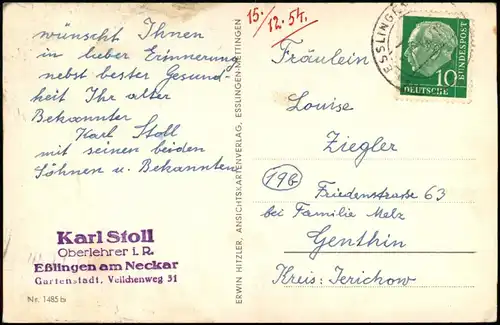 wünscht Ihnen
in lieber Erinnerung
nebst bester Gesund-
heit Ihr alter
Bekannter
Karl Stoll
mit seinen beiden
Söhnen u. Bekannten
Karl Stoll
Oberlehrer i. R.
Eßlingen am Neckar
Gartenstadt, Veilchenweg 31
Nr. 1485 b
ERWIN HITZLER, ANSICHTSKARTENVERLAG, ESSLINGEN-METTINGEN
15./12.54.
ESSLINGEN
10
DEUTSCHE
BUNDESPOST
Fräulein
Louise
Ziegler
(19b)
Friedenstraße 63
bei Familie Melz
Genthin
Kreis: Jerichow